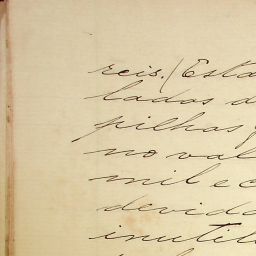 reis. (Esta
lados d
pilhas
no val
mil e c
devido
inutil